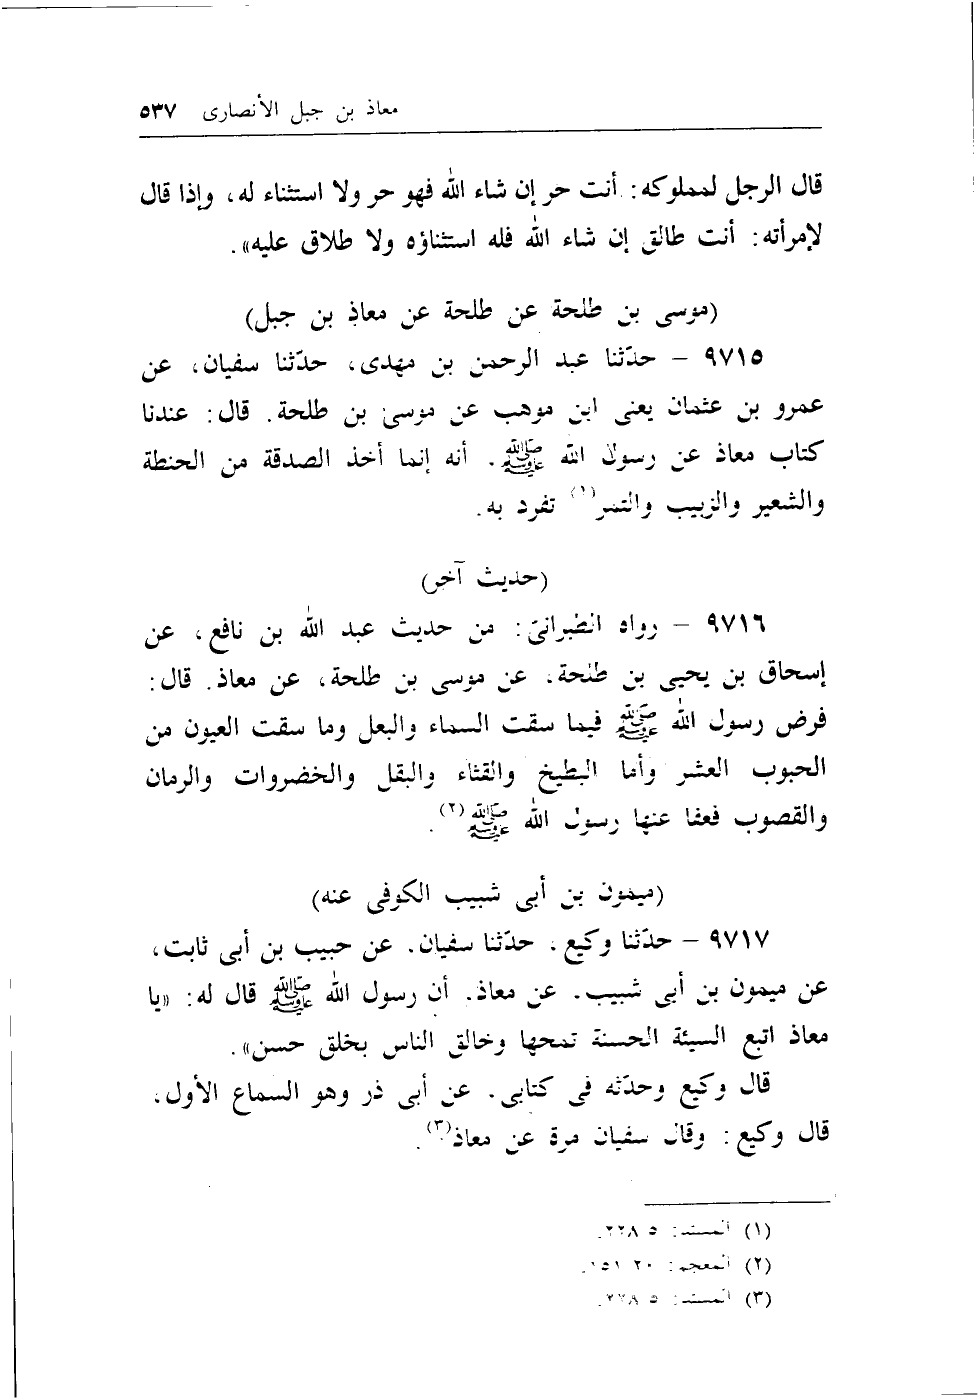 معاذ بن جبل الأنصارى ٥٣٧
قال الرجل لمملوكه: أنت حر إن شاء الله فهو حر ولا استثناء له، وإذا قال
لإمرأته: أنت طالق إن شاء الله فله استثناؤه ولا طلاق عليه».
(موسى بن طلحة عن طلحة عن معاذ بن جبل)
٩٧١٥ - حدّثنا عبد الرحمن بن مهدى، حدّثنا سفيان، عن
عمرو بن عثمان يعنى ابن موهب عن موسى بن طلحة. قال: عندنا
كتاب معاذ عن رسول الله ﷺ. أنه إنما أخذ الصدقة من الحنطة
والشعير والزبيب والتمر(١) تفرد به.
(حديث آخر)
٩٧١٦ - رواه الطبرانى: من حديث عبد الله بن نافع، عن
إسحاق بن يحيى بن طلحة، عن موسى بن طلحة، عن معاذ. قال:
فرض رسول الله ﷺ فيما سقت السماء والبعل وما سقت العيون من
الحبوب العشر وأما البطيخ والقثاء والبقل والخضروات والرمان
والقصوب فعفا عنها رسول الله ﷺ(٢).
(ميمون بن أبى شبيب الكوفى عنه)
٩٧١٧ - حدّثنا وكيع، حدّثنا سفيان. عن حبيب بن أبى ثابت،
عن ميمون بن أبى شبيب. عن معاذ. أن رسول الله ﷺ قال له: «يا
معاذ اتبع السيئة الحسنة تمحها وخالق الناس بخلق حسن».
قال وكيع وحدّثه فى كتابى. عن أبى ذر وهو السماع الأول،
قال وكيع: وقال سفيان مرة عن معاذ(٣).
(١) المسند: ٥ ٢٢٨.
(٢) المعجم: ٢٠ ١٥١.
(٣) المسند: ٥ ٢٢٨.